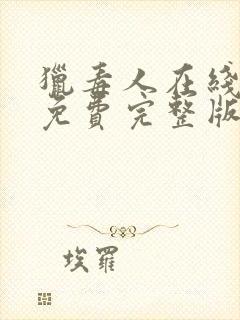 獵毒人在綫
免費完整版
埃羅